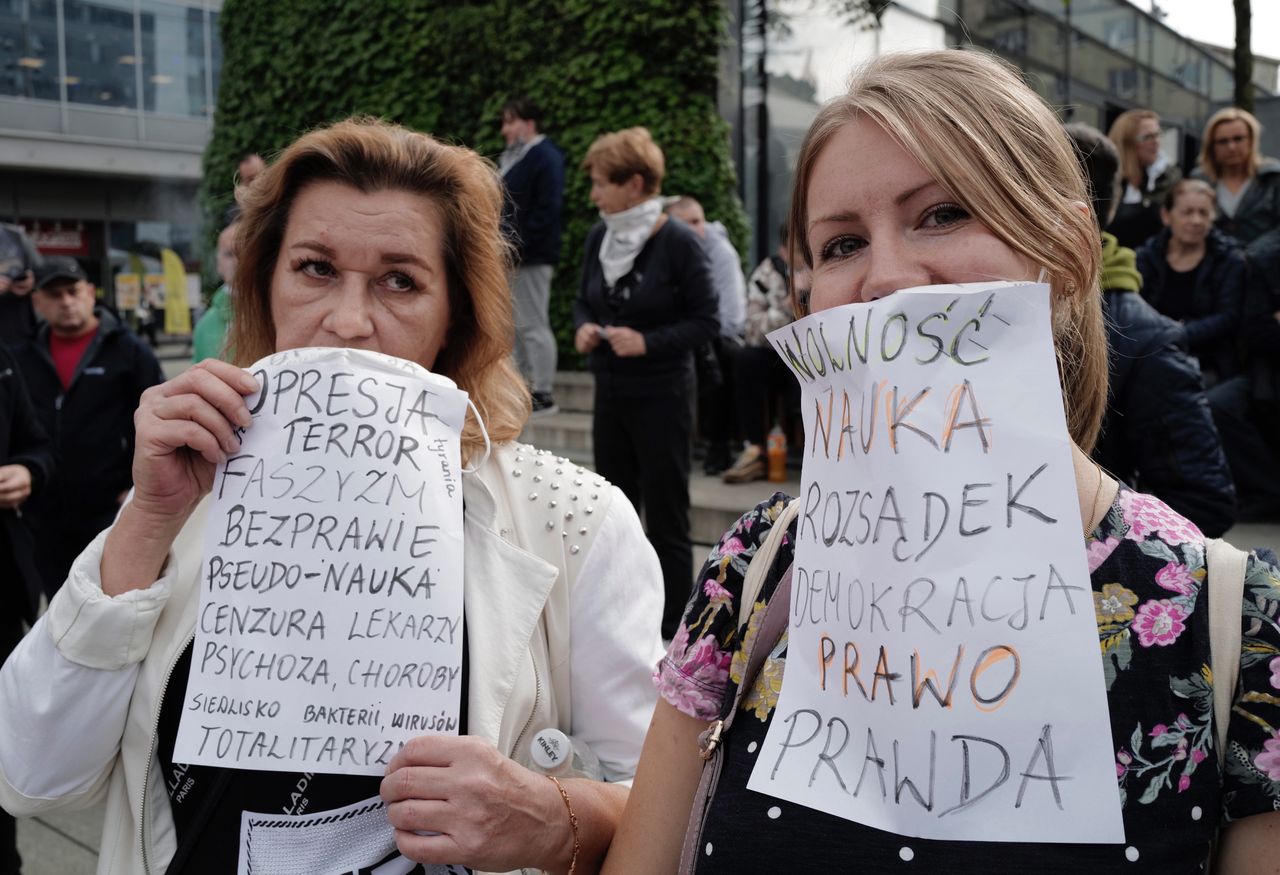 OPRESJA
TERROR
tyrania
FASZYZM
BEZPRAWIE
PSEUDO-NAUKA
CENZURA LEKARZY
PSYCHOZA, CHOROBY
SIEDLISKO BAKTERII, WIRUSÓW
TOTALITARYZM
WOLNOŚĆ
NAUKA
ROZSĄDEK
DEMOKRACJA
PRAWO
PRAWDA
KINLEY
PARIS